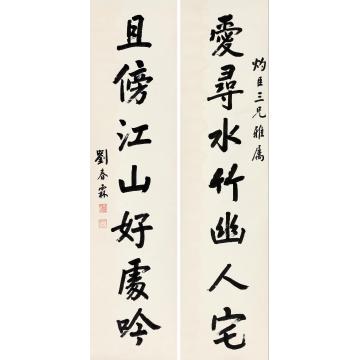 灼臣三兄雅属
愛尋水竹幽人宅
且傍江山好處吟
劉春霖